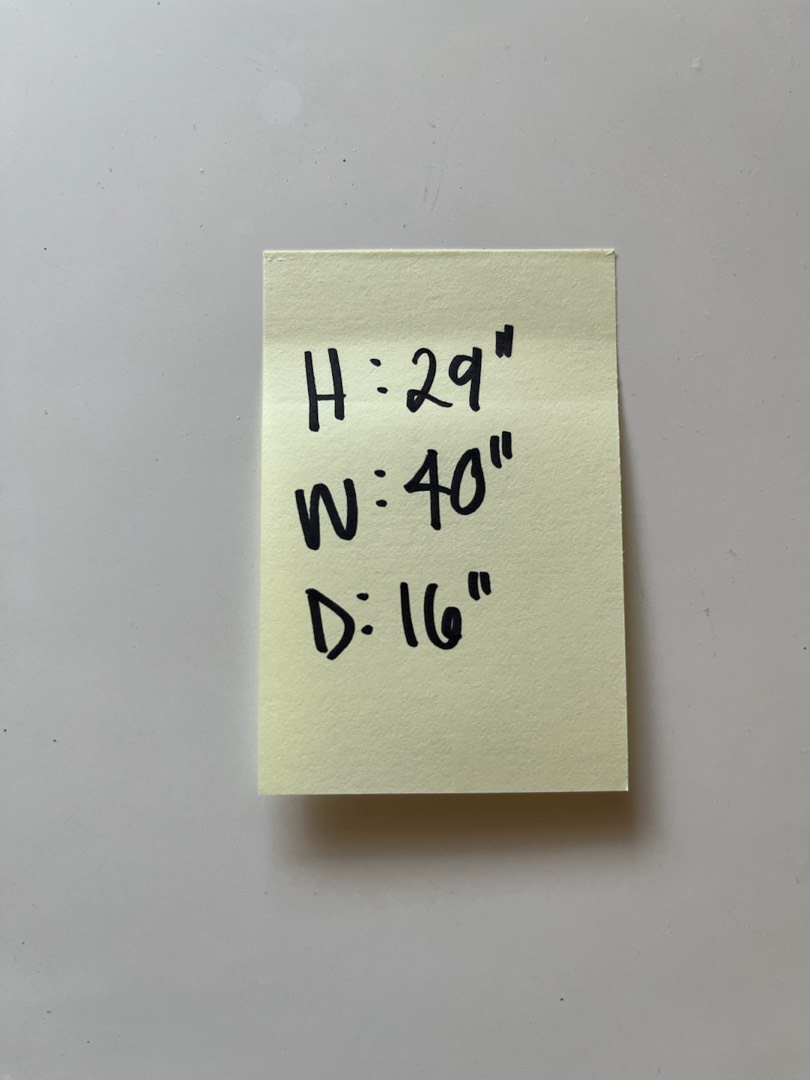 H: 29"
W: 40"
D: 16"